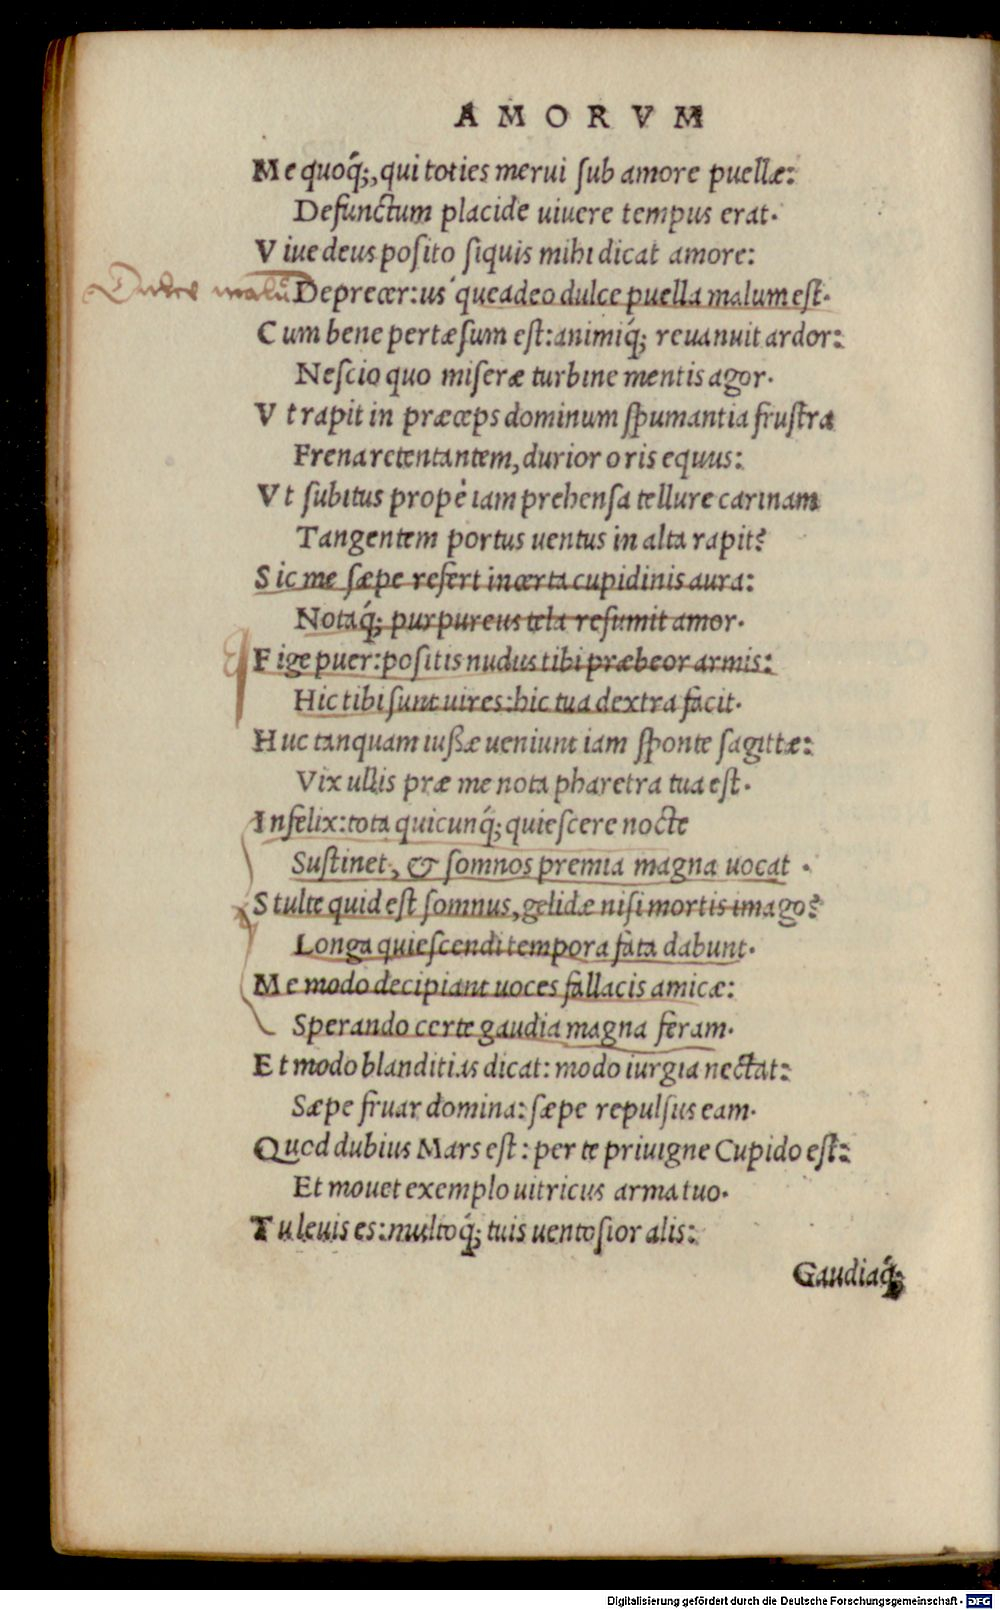 AMORVM
Me quoq́;, qui toties merui ſub amore puellæ:
Defunctum placide uiuere tempus erat.
Viue deus poſito ſiquis mihi dicat amore:
Dulce malū
Deprecer: us'que adeo dulce puella malum eſt.
Cum bene pertæſum eſt: animiq́; reuanuit ardor:
Neſcio quo miſeræ turbine mentis agor.
Vt rapit in præceps dominum ſpumantia fruſtra
Frena retentantem, durior oris equus:
Vt ſubitus propè iam prehenſa tellure carinam
Tangentem portus uentus in alta rapit?
Sic me ſæpe refert incerta cupidinis aura:
Notaq́; purpureus tela reſumit amor.
Fige puer: poſitis nudus tibi præbeor armis:
Hic tibi ſunt uires: hic tua dextra facit.
Huc tanquam iuſſæ ueniunt iam ſponte ſagittæ:
Vix ullis præ me nota pharetra tua eſt.
Infelix: tota quicunq́; quieſcere nocte
Suſtinet, & ſomnos premia magna uocat.
Stulte quid eſt ſomnus, gelidæ niſi mortis imago?
Longa quieſcendi tempora fata dabunt.
Me modo decipiant uoces fallacis amicæ:
Sperando certe gaudia magna feram.
Et modo blanditias dicat: modo iurgia nectat:
Sæpe fruar domina: ſæpe repulſus eam.
Quod dubius Mars eſt: per te priuigne Cupido eſt:
Et mouet exemplo uitricus arma tuo.
Tu leuis es: multoq́; tuis uentoſior alis:
Gaudiaq́;
Digitalisierung gefördert durch die Deutsche Forschungsgemeinschaft - DFG